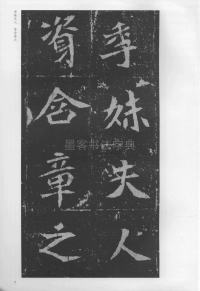 季妹夫人
資含章之
墨客书法字典